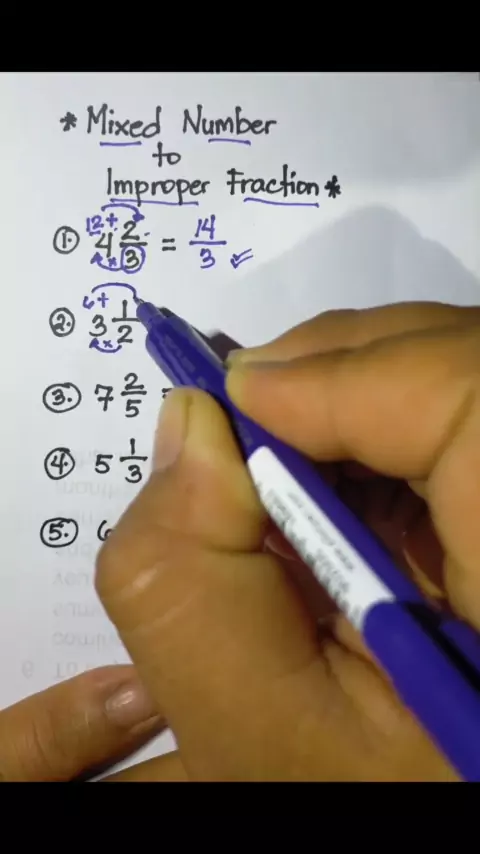 * Mixed Number
to
Improper Fraction *
12 +
1. 4 2/3 = 14/3 ✓
×
6 +
2. 3 1/2
×
3. 7 2/5 =
4. 5 1/3
5. 6